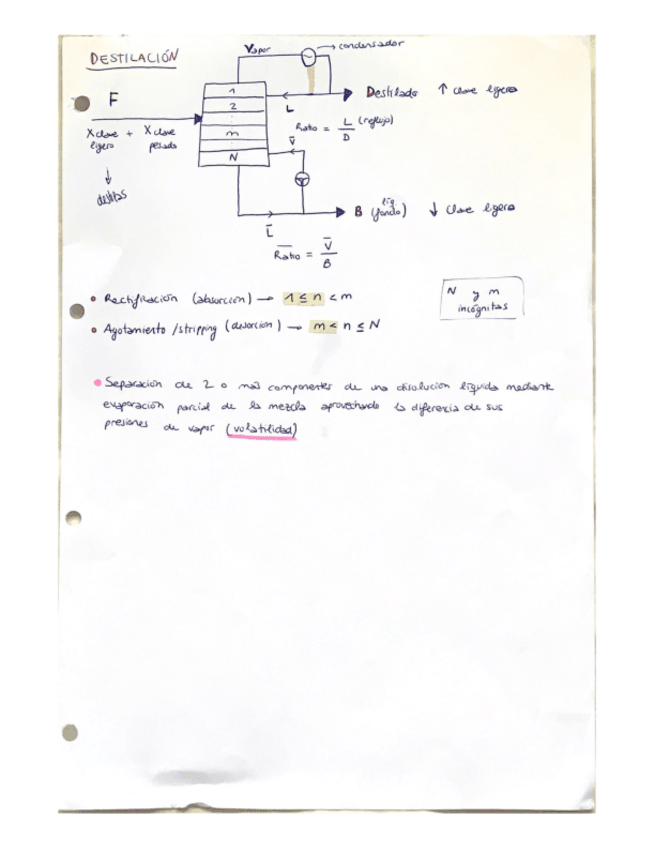 DESTILACIÓN
Vapor → condensador
F
1
2
m
N
L
Destilado ↑ clave ligero
Ratio = L/D (reflujo)
V̄
X clave ligero + X clave pesado
↓
L̄
B (fondo) liq ↓ clave ligero
Ratio = V̄/B
• Rectificación (absorción) → 1 ≤ n < m
• Agotamiento /stripping (desorción) → m < n ≤ N
N y m
incógnitas
• Separación de 2 o más componentes de una disolución líquida mediante
evaporación parcial de la mezcla aprovechando la diferencia de sus
presiones de vapor (volatilidad)